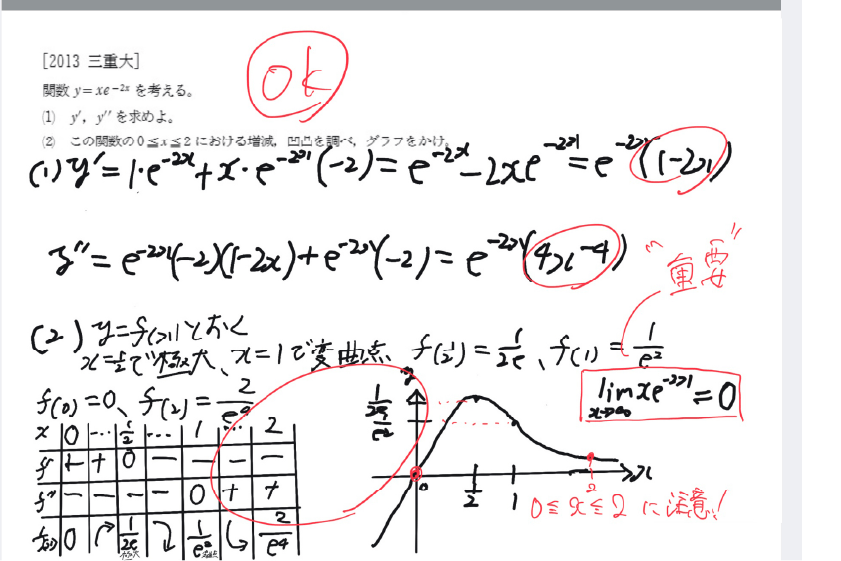 [2013 三重大]
OK
関数 y=xe^{-2x} を考える。
(1) y′, y″ を求めよ。
(2) この関数の 0≦x≦2 における増減, 凹凸を調べ, グラフをかけ。
(1) y′=1・e^{-2x}+x・e^{-2x}(-2)=e^{-2x}-2xe^{-2x}=e^{-2x}(1-2x)
y″=e^{-2x}(-2)(1-2x)+e^{-2x}(-2)=e^{-2x}(4x-4)
"重要"
(2) y=f(x)とおく
x=1/2で極大、x=1で変曲点 f(1/2)=1/2e、f(1)=1/e^2
lim x→∞ xe^{-2x}=0
f(0)=0、f(2)=2/e^4
x 0 … 1/2 … 1 … 2
f′ + + 0 − − − −
f″ − − − − 0 + +
f(x) 0 1/2e 極大 1/e^2 2/e^4
y
1/2e
1/e^2
0 1/2 1 2 x
0≦x≦2 に注意!